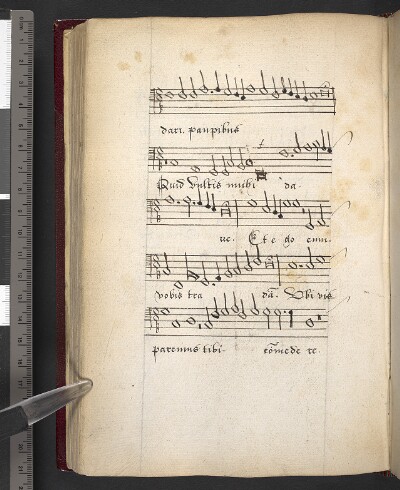 dari. paupibus
Quid vultis michi da
re. Et e go eum
vobis tra dā. Ubi vis
paremus tibi. cōmede re